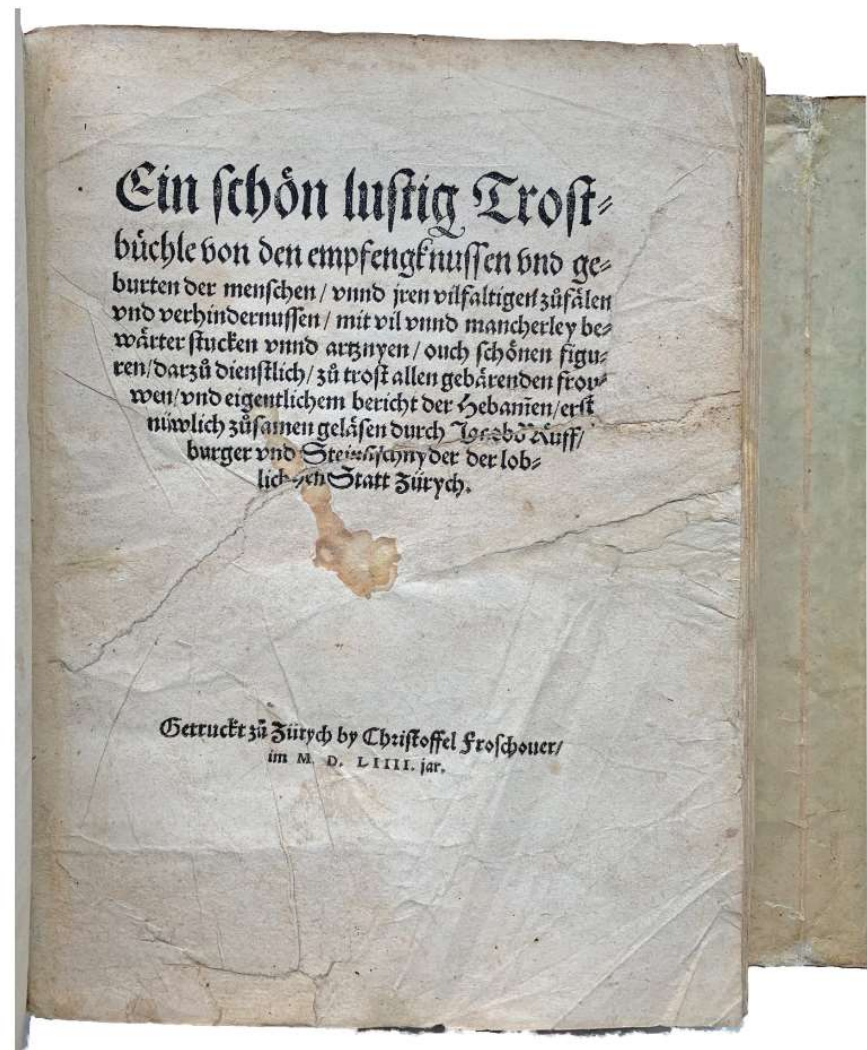 Ein ſchön luſtig Troſt⸗
büchle von den empfengknuſſen vnd ge⸗
burten der menſchen / vnnd jren vilfaltigen zůfälen
vnd verhindernuſſen / mit vil vnnd mancherley be⸗
wärter ſtucken vnnd artznyen / ouch ſchönen figu⸗
ren / darzů dienſtlich / zů troſt allen gebärenden frow⸗
wen / vnd eigentlichem bericht der Hebam̃en / erſt
nüwlich zůſamen geläſen durch Jacobũ Růff /
burger vnd Steinſchnyder der lob⸗
lichen Statt Zürych.
Getruckt zů Zürych by Chriſtoffel Froſchouer /
im M. D. LIIII. jar.